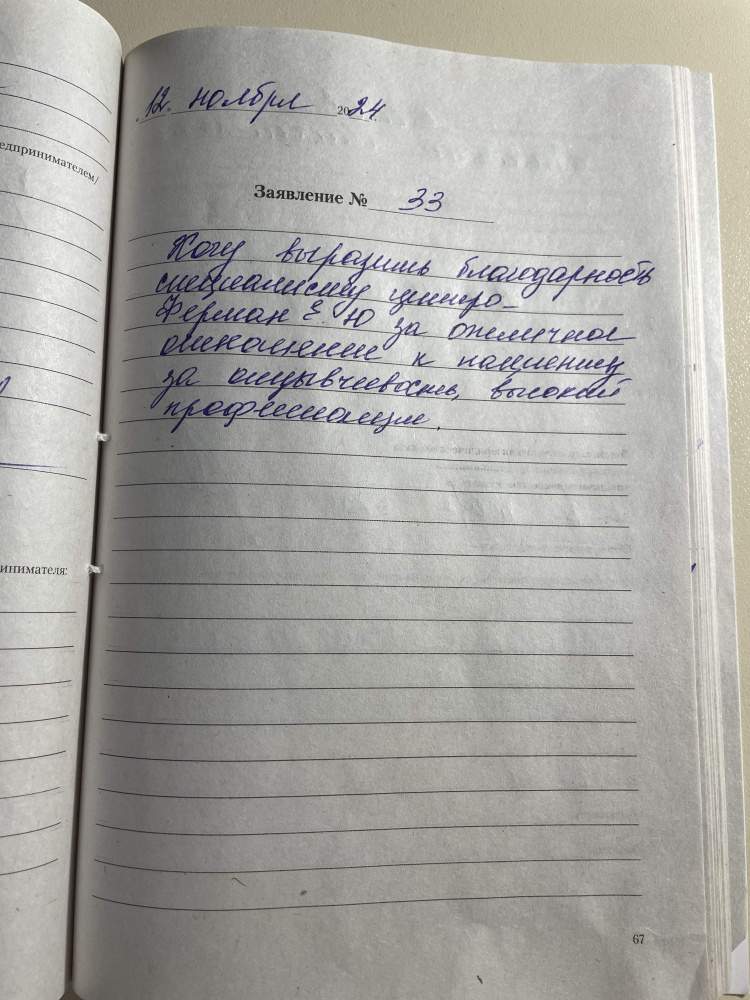 12. ноября 2024
едпринимателем/
Заявление № 33
Хочу выразить благодарность
специалисту центра
Ферман Е. Ю за отличное
отношение к пациенту
за отзывчивость, высокий
профессионализм.
инимателя:
67